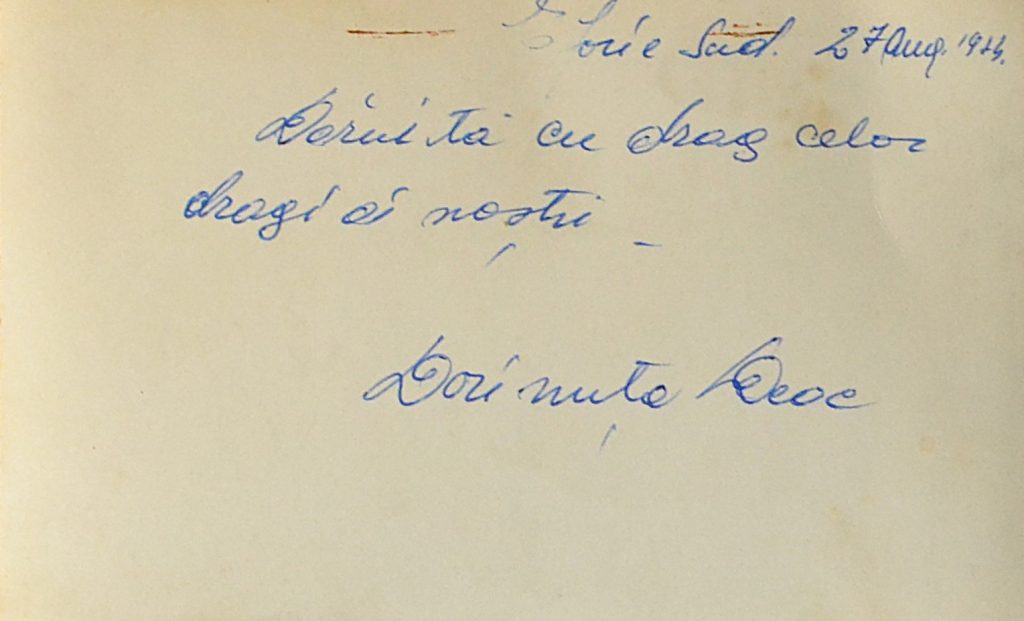 Eforie Sud. 27 Aug.
Dăruită cu drag celor
dragi ai noștri –
Dorinuța